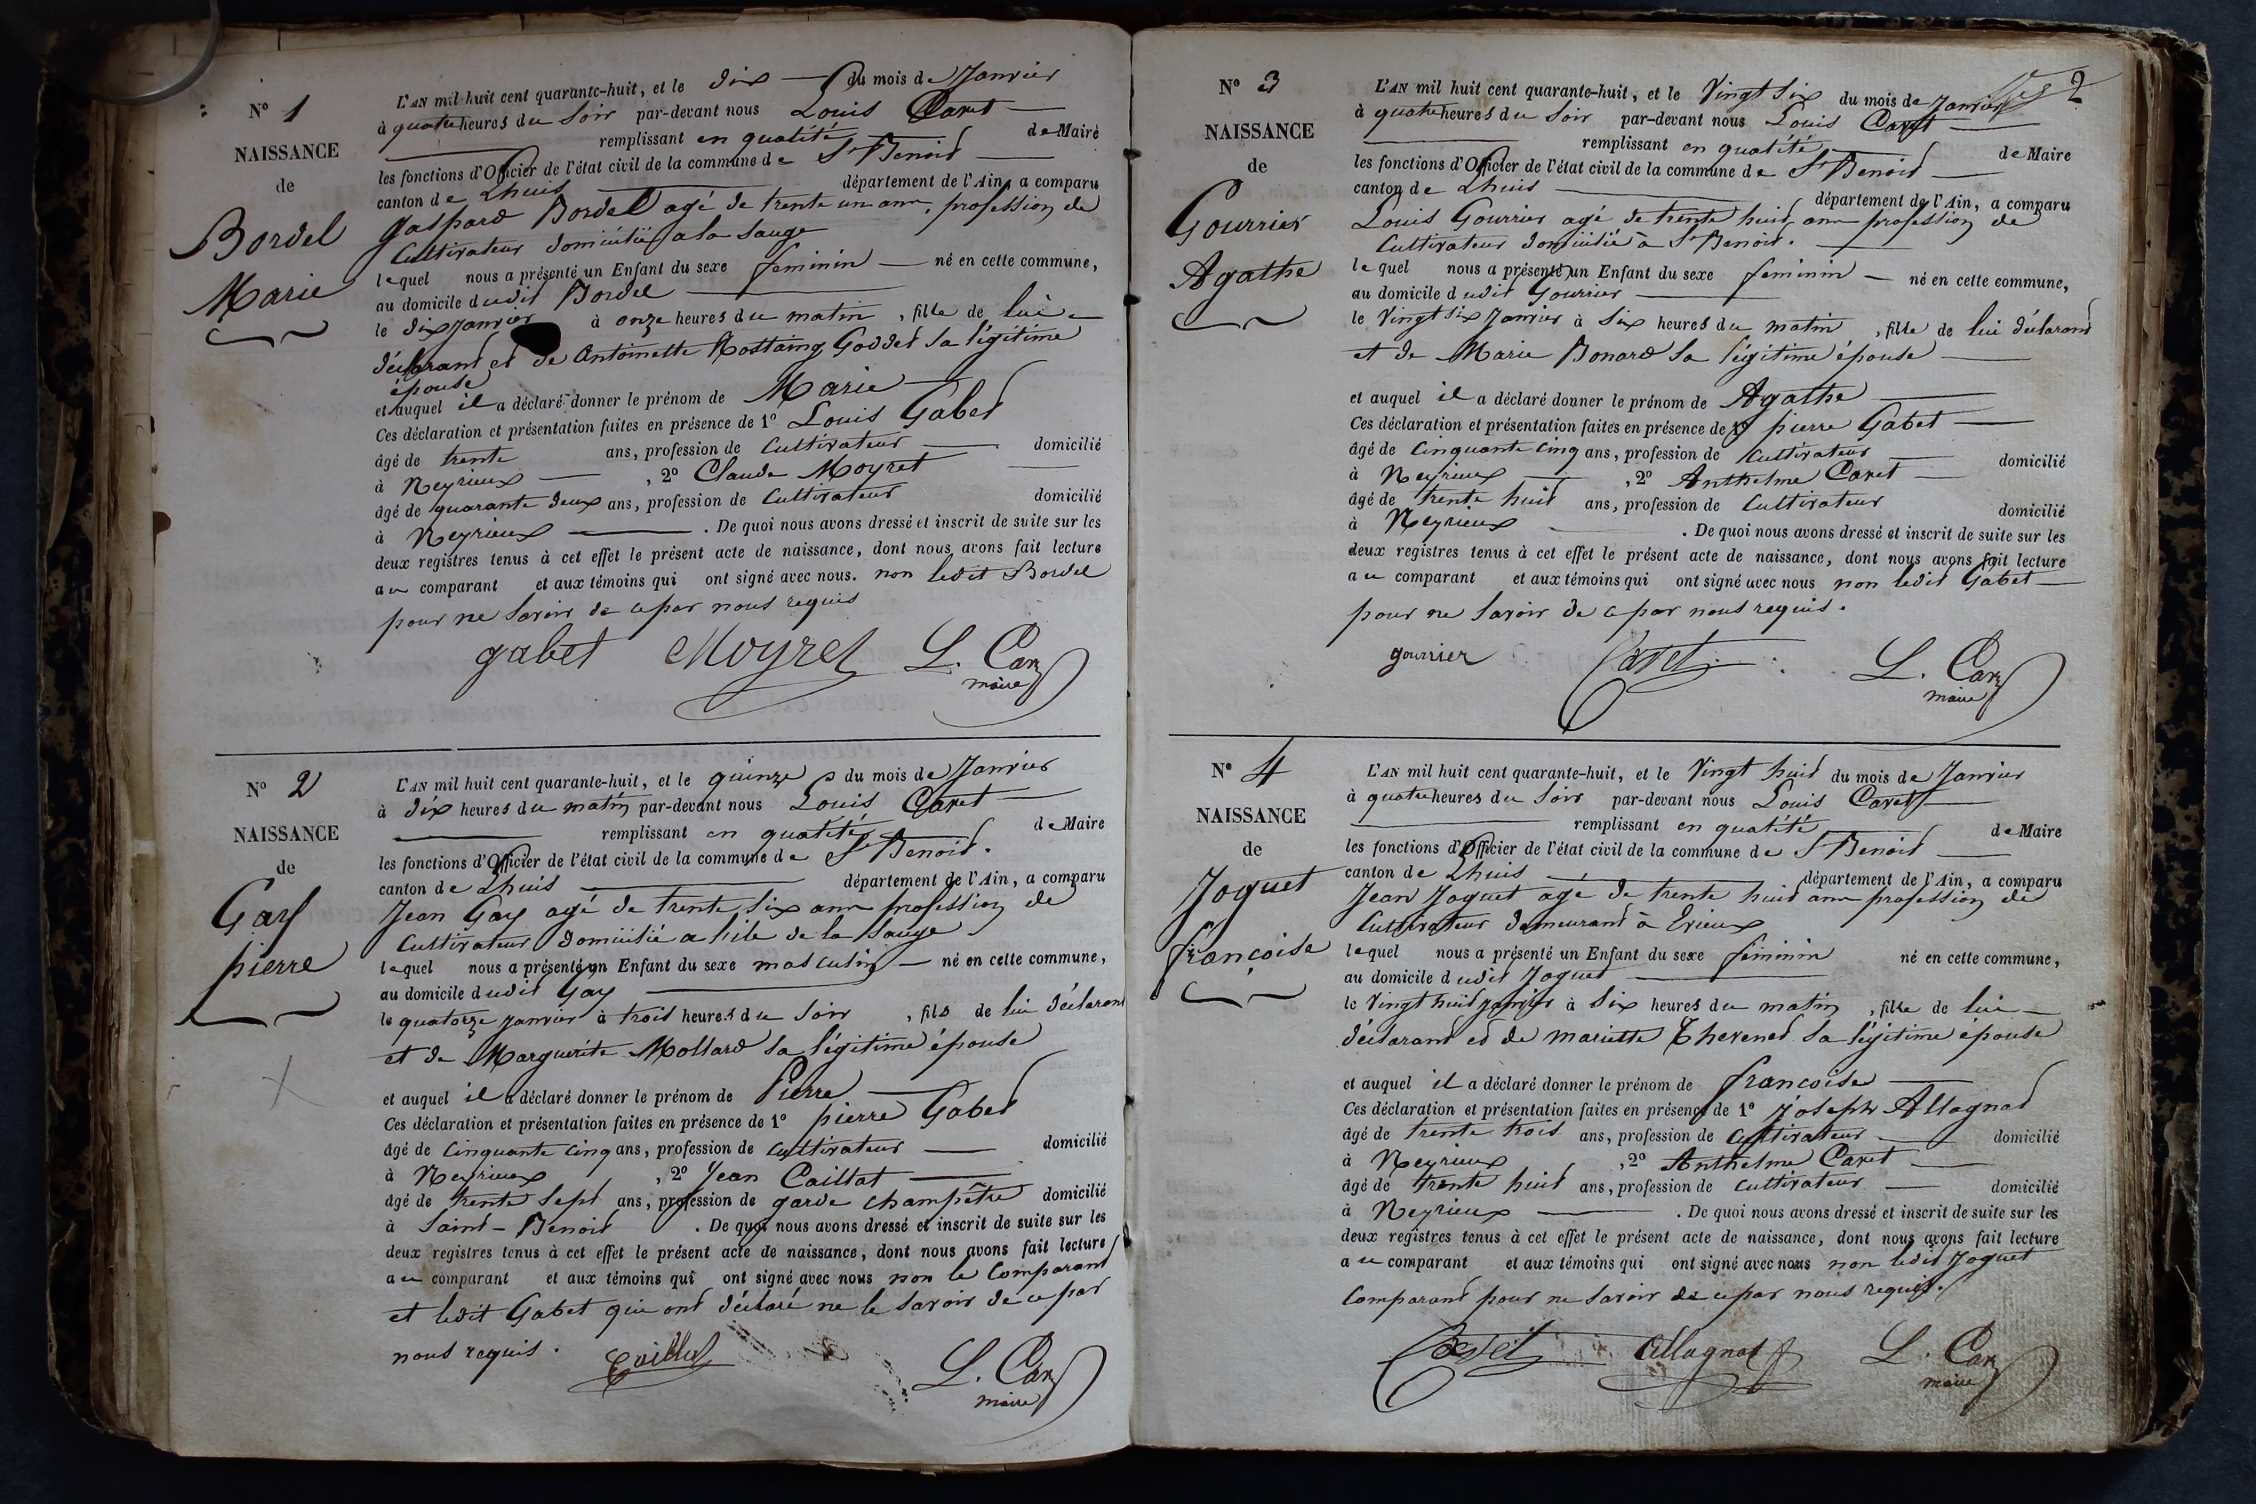 N° 1
NAISSANCE
de
Bordel
Marie
L'AN mil huit cent quarante-huit, et le dix du mois de Janvier
à quatre heures du Soir par-devant nous Louis Caret
remplissant en qualité de Maire
les fonctions d'Officier de l'état civil de la commune de St Benoit
canton de Lhuis département de l'Ain, a comparu
Gaspard Bordel agé de trente un ans, profession de
Cultivateur domicilié a la Sauge
lequel nous a présenté un Enfant du sexe feminin né en cette commune,
au domicile dudit Bordel
le dix Janvier à onze heures du matin, fille de lui
déclarant et de Antoinette Rostaing Goddet sa légitime
épouse
et auquel il a déclaré donner le prénom de Marie
Ces déclaration et présentation faites en présence de 1° Louis Gabet
âgé de trente ans, profession de Cultivateur domicilié
à Neyrieux, 2° Claude Moyret
âgé de quarante deux ans, profession de Cultivateur domicilié
à Neyrieux. De quoi nous avons dressé et inscrit de suite sur les
deux registres tenus à cet effet le présent acte de naissance, dont nous avons fait lecture
au comparant et aux témoins qui ont signé avec nous. non ledit Bordel
pour ne savoir de ce par nous requis
gabet Moyret L. Car
maire
N° 2
NAISSANCE
de
Gay
pierre
L'AN mil huit cent quarante-huit, et le quinze du mois de Janvier
à dix heures du matin par-devant nous Louis Caret
remplissant en qualité de Maire
les fonctions d'Officier de l'état civil de la commune de St Benoit.
canton de Lhuis département de l'Ain, a comparu
Jean Gay agé de trente six ans profession de
Cultivateur domicilié a l'ile de la Sauge
lequel nous a présenté un Enfant du sexe masculin né en cette commune,
au domicile dudit Gay
le quatorze janvier à trois heures du Soir, fils de lui déclarant
et de Marguerite Mollard sa légitime épouse
et auquel il a déclaré donner le prénom de Pierre
Ces déclaration et présentation faites en présence de 1° pierre Gabet
âgé de Cinquante cinq ans, profession de cultivateur domicilié
à Neyrieux, 2° Jean Caillat
âgé de trente sept ans, profession de garde champêtre domicilié
à Saint-Benoit. De quoi nous avons dressé et inscrit de suite sur les
deux registres tenus à cet effet le présent acte de naissance, dont nous avons fait lecture
au comparant et aux témoins qui ont signé avec nous non le Comparant
et ledit Gabet qui ont déclaré ne le savoir de ce par
nous requis.
Caillat L. Car
maire
2
N° 3
NAISSANCE
de
Gourrier
Agathe
L'AN mil huit cent quarante-huit, et le Vingt Six du mois de Janvier
à quatre heures du Soir par-devant nous Louis Caret
remplissant en qualité de Maire
les fonctions d'Officier de l'état civil de la commune de St Benoit
canton de Lhuis département de l'Ain, a comparu
Louis Gourrier agé de trente huit ans profession de
Cultivateur domicilié à St Benoit.
lequel nous a présenté un Enfant du sexe feminin né en cette commune,
au domicile dudit Gourrier
le Vingt six Janvier à Six heures du matin, fille de lui déclarant
et de Marie Bonard sa légitime épouse
et auquel il a déclaré donner le prénom de Agathe
Ces déclaration et présentation faites en présence de 1° pierre Gabet
âgé de Cinquante Cinq ans, profession de Cultivateur domicilié
à Neyrieux, 2° Anthelme Caret
âgé de trente huit ans, profession de Cultivateur domicilié
à Neyrieux. De quoi nous avons dressé et inscrit de suite sur les
deux registres tenus à cet effet le présent acte de naissance, dont nous avons fait lecture
au comparant et aux témoins qui ont signé avec nous non ledit Gabet
pour ne savoir de ce par nous requis.
gourrier Caret L. Car
maire
N° 4
NAISSANCE
de
Joguet
françoise
L'AN mil huit cent quarante-huit, et le Vingt huit du mois de Janvier
à quatre heures du Soir par-devant nous Louis Caret
remplissant en qualité de Maire
les fonctions d'Officier de l'état civil de la commune de St Benoit
canton de Lhuis département de l'Ain, a comparu
Jean Joguet agé de trente huit ans profession de
Cultivateur demeurant à Evieux
lequel nous a présenté un Enfant du sexe féminin né en cette commune,
au domicile dudit Joguet
le Vingt huit janvier à Six heures du matin, fille de lui
déclarant et de mariette Thevenet sa légitime épouse
et auquel il a déclaré donner le prénom de francoise
Ces déclaration et présentation faites en présence de 1° Joseph Allagnat
âgé de trente trois ans, profession de Cultivateur domicilié
à Neyrieux, 2° Anthelme Caret
âgé de trente huit ans, profession de Cultivateur domicilié
à Neyrieux. De quoi nous avons dressé et inscrit de suite sur les
deux registres tenus à cet effet le présent acte de naissance, dont nous avons fait lecture
au comparant et aux témoins qui ont signé avec nous non ledit Joguet
Comparant pour ne savoir de ce par nous requis.
Caret Allagnat L. Car
maire